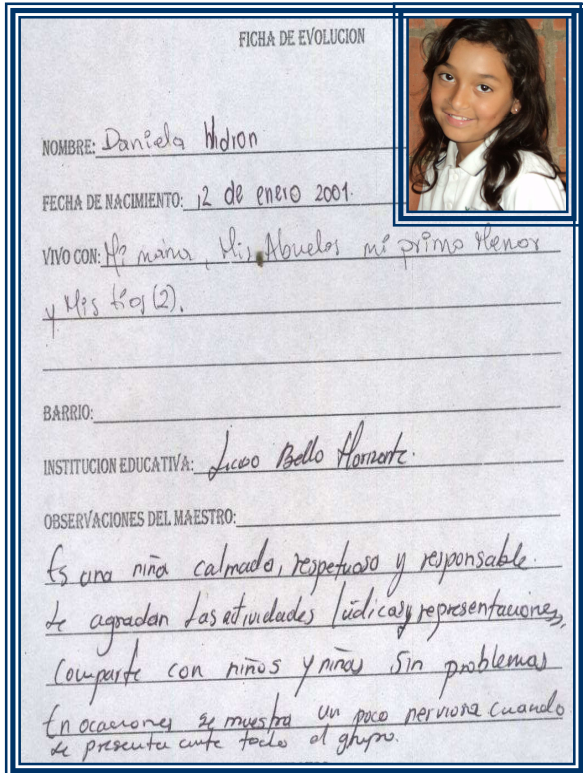 FICHA DE EVOLUCION
NOMBRE: Daniela
FECHA DE NACIMIENTO: 12 de enero 2001.
VIVO CON: Mi mama, Mis Abuelos mi primo Menor
y Mis tios (2).
BARRIO:
INSTITUCION EDUCATIVA: Liceo Bello Horizonte.
OBSERVACIONES DEL MAESTRO:
Es una niña calmado, respetuoso y responsable.
Le agradan las actividades lúdicas y representaciones,
Comparte con niños y niñas sin problemas
En ocasiones se muestra un poco nerviosa cuando
se presenta ante todo el grupo.